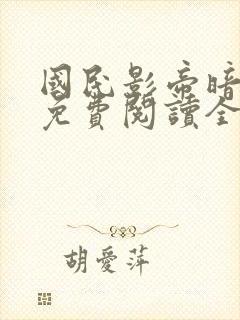 國民影帝暗
免費閱讀全
胡愛萍